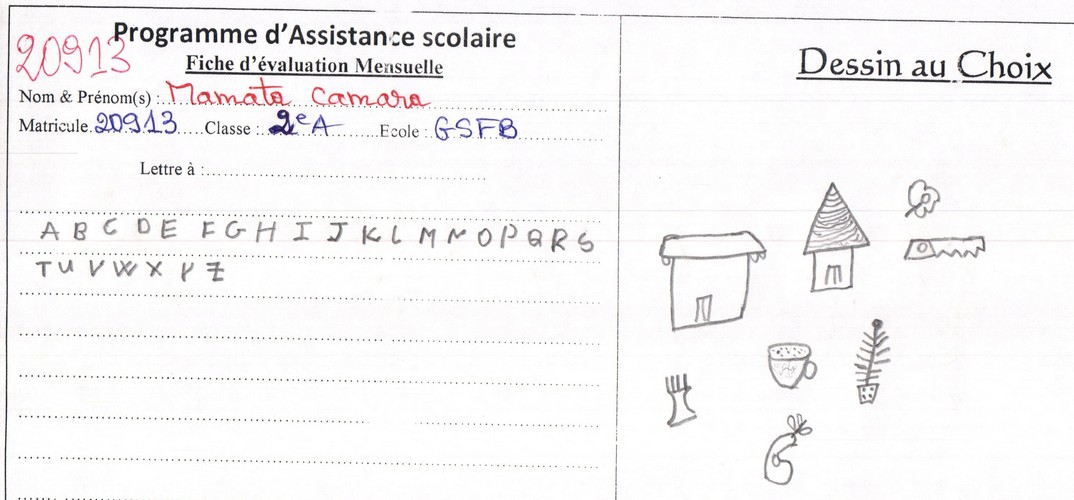 20913
Programme d'Assistance scolaire
Fiche d'évaluation Mensuelle
Nom & Prénom(s) : Mamata Camara
Matricule. 20913 Classe : 2e A Ecole : GSFB
Lettre à :
A B C D E F G H I J K L M N O P Q R S
T U V W X Y Z
Dessin au Choix